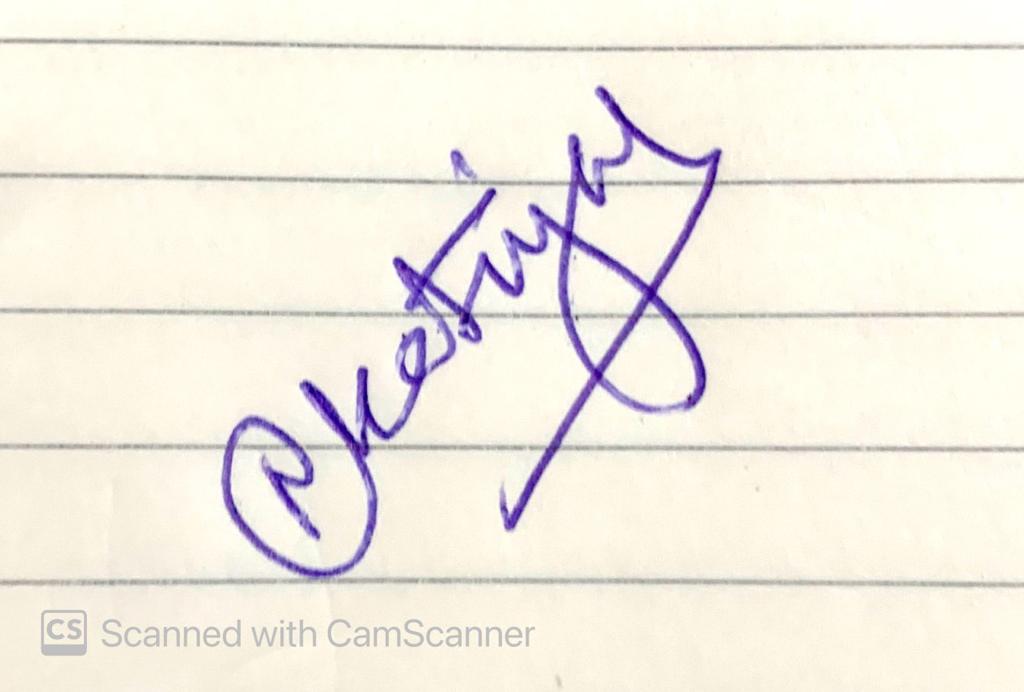 Katiyar
CS Scanned with CamScanner